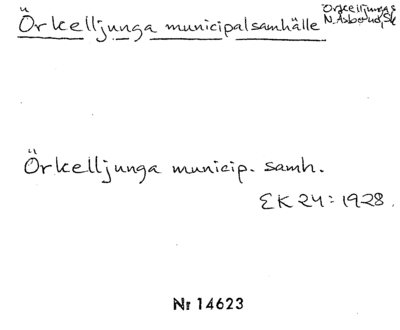 Örkelljunga municipalsamhälle
Örkelljunga s
N. Åsbo hd, Sk
Örkelljunga municip. samh.
EK 24:1928.
Nr 14623